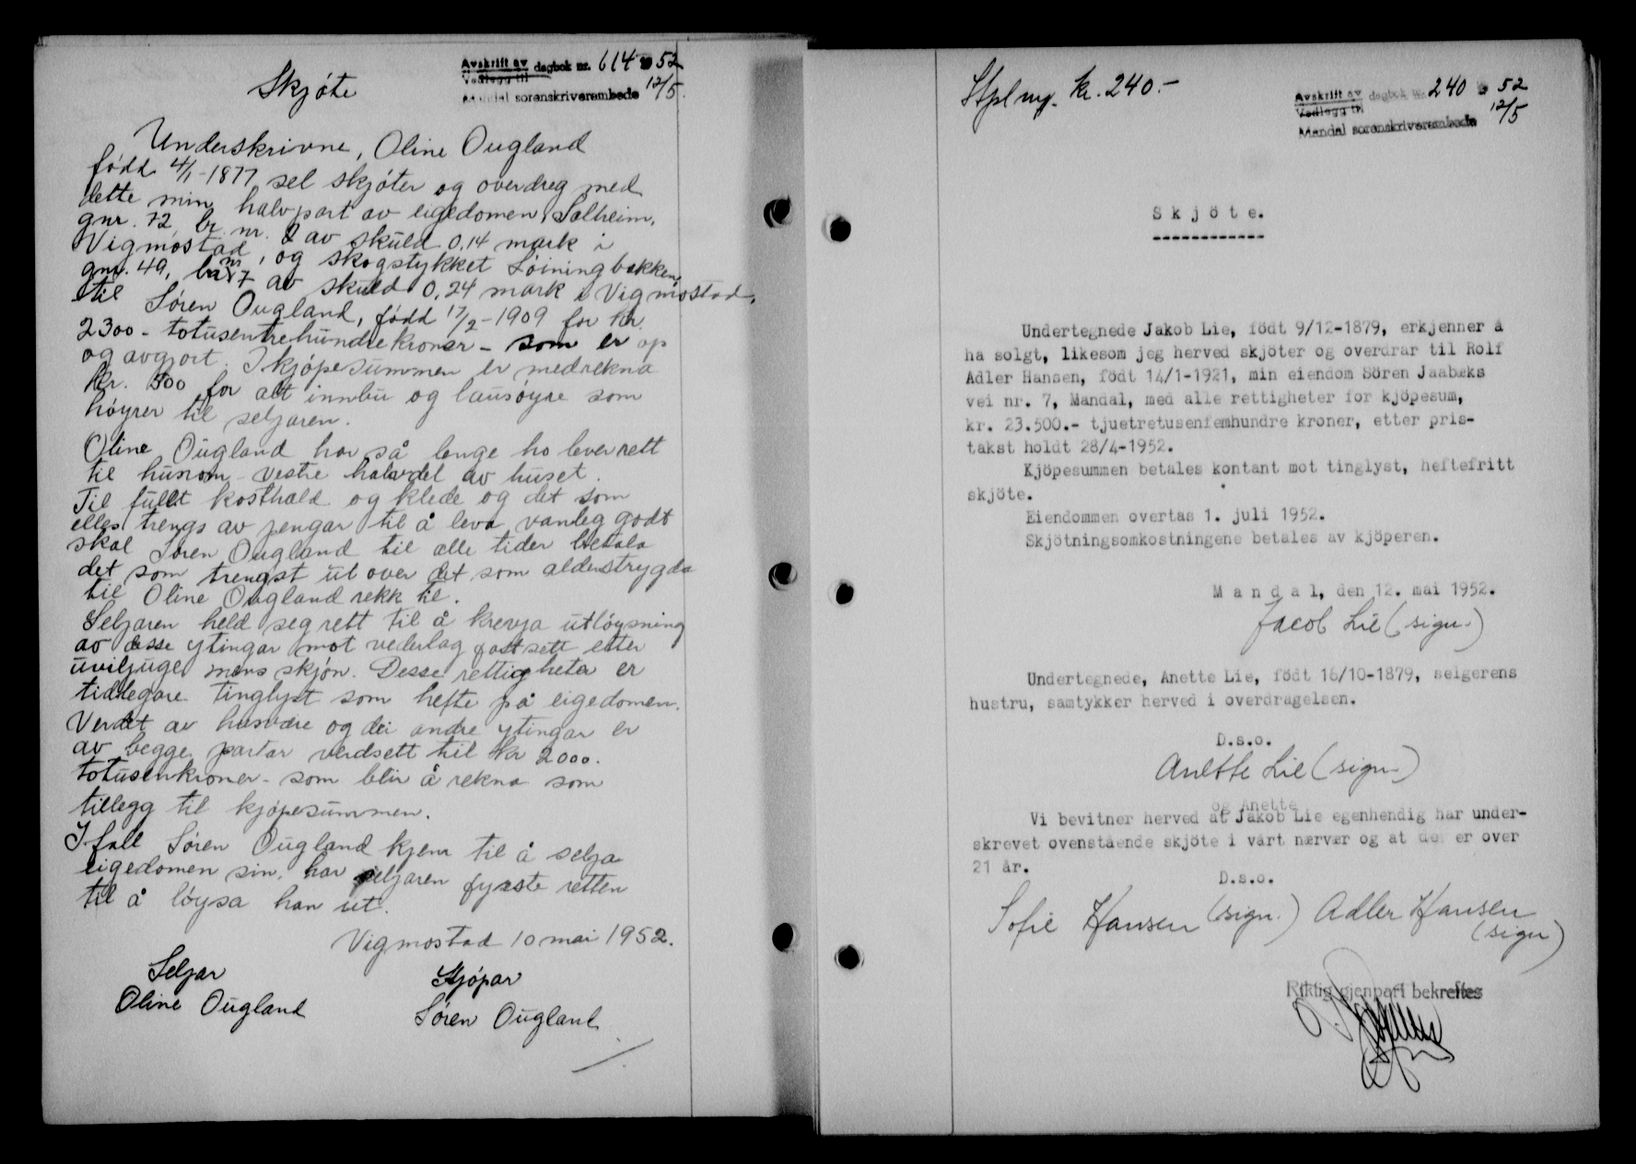 Avskrift av dagbok nr. 614 1952
Vedlegg til 12/5
Mandal sorenskriverembede
Skjøte
Underskrivne, Oline Ougland
född 4/1-1877 sel skjøter og overdreg med
dette min halvpart av eigedomen Solheim,
gnr. 72, br. nr. 2 av skuld 0,14 mark i
Vigmostad, og skogstykket Løiningbakken,
gnr. 49, br. nr 7 av skuld 0,24 mark i Vigmostad,
til Søren Ougland, född 17/2-1909 for kr.
2300 - totusentrehundrekroner - som er op
og avgjort. I kjøpesummen er medrekna
kr. 500 for alt innbu og lausøyre som
høyrer til seljaren.
Oline Ougland har så lenge ho lever rett
til husrom vestre halvdel av huset.
Til fullt kosthald og klede og det som
elles trengs av pengar til å leva vanleg godt
skal Søren Ougland til alle tider betala
det som trengst ut over det som alderstrygda
til Oline Ougland rekk til.
Seljaren held seg rett til å krevja utløysning
av desse ytingar mot vederlag fastsett etter
uviljuge mans skjøn. Desse rettigheter er
tidlegare tinglyst som hefte på eigedomen.
Verdet av husvære og dei andre ytingar er
av begge partar verdsett til kr 2000.
totusenkroner - som blir å rekna som
tillegg til kjøpesummen.
I fall Søren Ougland kjem til å selja
eigedomen sin, har seljaren fyrste retten
til å løysa han ut.
Vigmostad 10 mai 1952.
Seljar Kjøpar
Oline Ougland Søren Ougland
Stpl mrk. kr. 240.-
Avskrift av dagbok nr. 240 1952
Vedlegg til 12/5
Mandal sorenskriverembede
Skjöte.
Undertegnede Jakob Lie, födt 9/12-1879, erkjenner å
ha solgt, likesom jeg herved skjöter og overdrar til Rolf
Adler Hansen, födt 14/1-1921, min eiendom Sören Jaabæks
vei nr. 7, Mandal, med alle rettigheter for kjöpesum,
kr. 23.500.- tjuetretusenfemhundre kroner, etter pris-
takst holdt 28/4-1952.
Kjöpesummen betales kontant mot tinglyst, heftefritt
skjöte.
Eiendommen overtas 1. juli 1952.
Skjötningsomkostningene betales av kjöperen.
Mandal, den 12. mai 1952.
Jacob Lie (sign.)
Undertegnede, Anette Lie, födt 16/10-1879, selgerens
hustru, samtykker herved i overdragelsen.
D.s.o.
Anette Lie (sign.)
og Anette
Vi bevitner herved at Jakob Lie egenhendig har under-
skrevet ovenstående skjöte i vårt nærvær og at de er over
21 år.
D.s.o.
Sofie Hansen (sign.) Adler Hansen
(sign)
Riktig gjenpart bekreftes